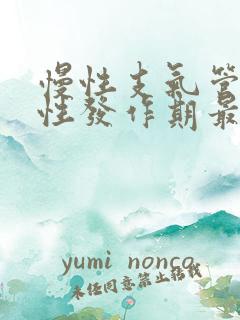 慢性支氣管
性發作期最
yumi nonco
未经同意禁止搭载